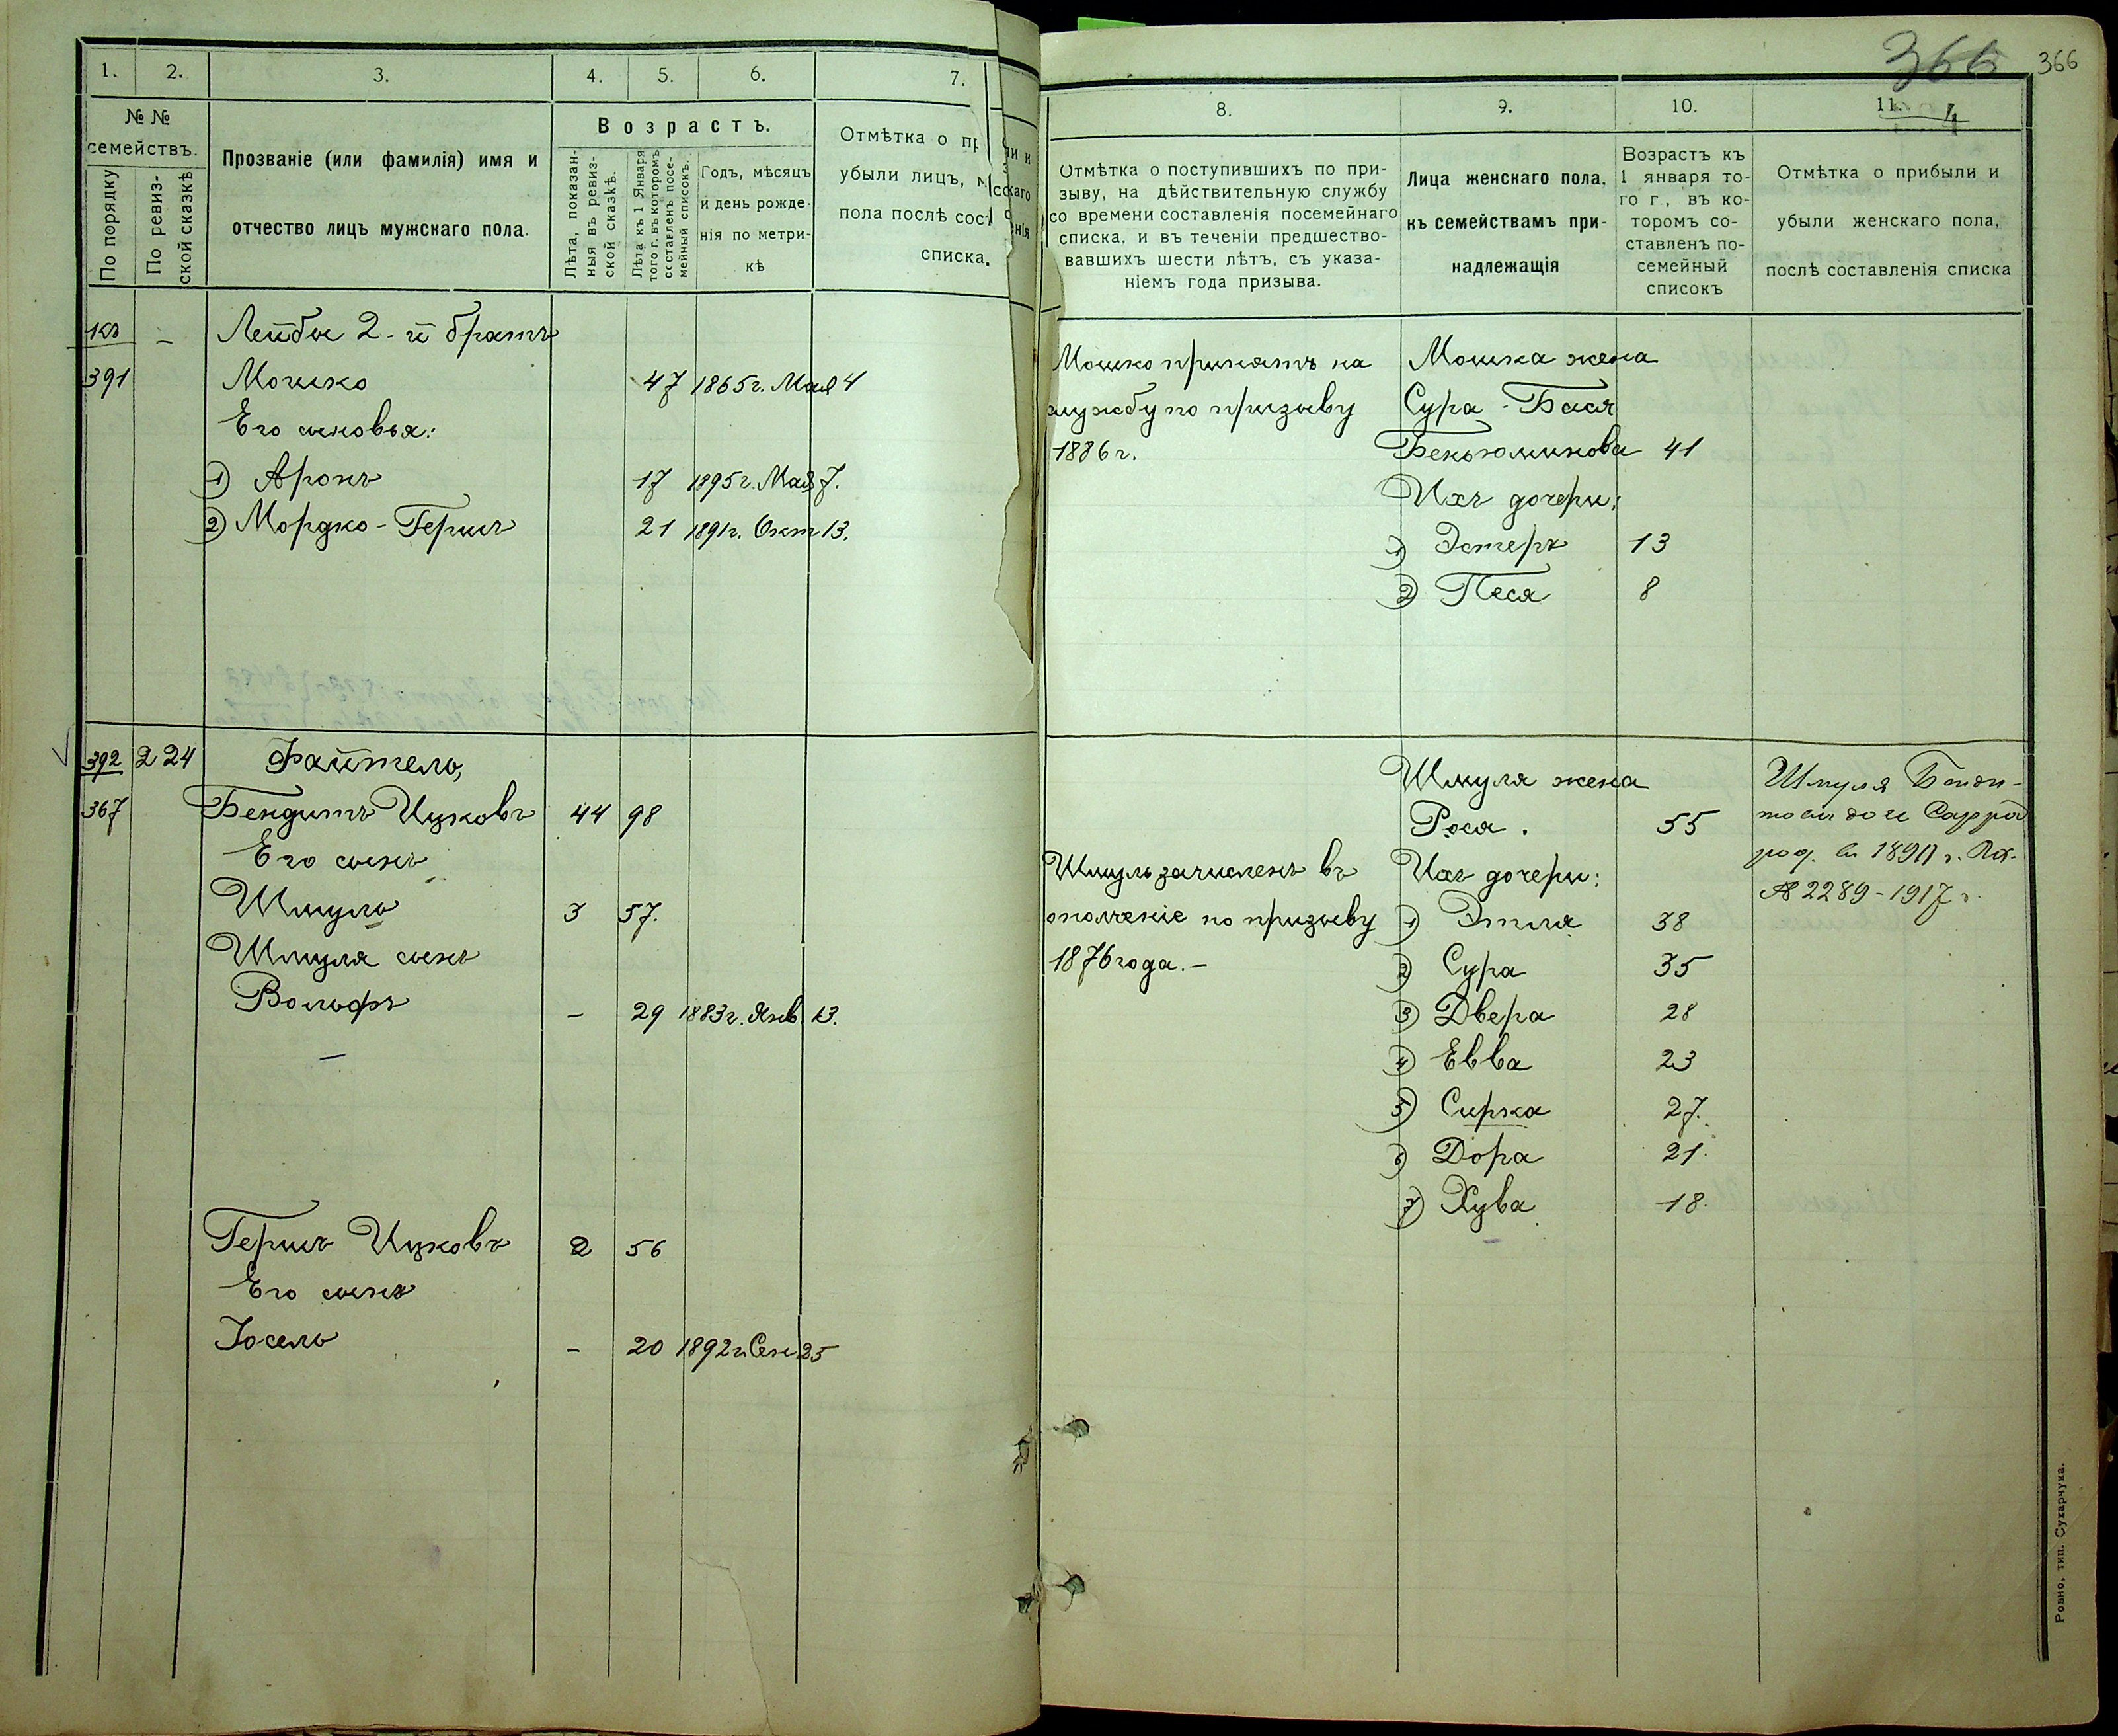 1.
2.
3.
4.
5.
6.
7.
№ №
семействъ.
По порядку
По ревиз-
ской сказкѣ
Прозваніе (или фамилія) имя и
отчество лицъ мужскаго пола.
Возрастъ.
Лѣта, показан-
ныя въ ревиз-
ской сказкѣ.
Лѣта къ 1 Января
того г. въ которомъ
составленъ посе-
мейный списокъ.
Годъ, мѣсяцъ
и день рожде-
нія по метри-
кѣ
Отмѣтка о пр
убыли лицъ, м
пола послѣ сост
списка.
къ
391
–
Лейбы 2-й братъ
Мошко 47 1865г. Мая 4
Его сыновья:
1) Аронъ 17 1895г. Мая 7.
2) Мордко-Гершъ 21 1891г. Окт 13.
392 224 Файтель,
367 Бендитъ Ицковъ 44 98
Его сынъ
Шмуль 3 57.
Шмуля сынъ
Вольфъ – 29 1883г. Янв. 13.
–
Гершъ Ицковъ 2 56
Его сынъ
Іосель – 20 1892г. Сен 25
366
366
8.
9.
10.
11.
4
Отмѣтка о поступившихъ по при-
зыву, на дѣйствительную службу
со времени составленія посемейнаго
списка, и въ теченіи предшество-
вавшихъ шести лѣтъ, съ указа-
ніемъ года призыва.
Лица женскаго пола,
къ семействамъ при-
надлежащія
Возрастъ къ
1 января то-
го г., въ ко-
торомъ со-
ставленъ по-
семейный
списокъ
Отмѣтка о прибыли и
убыли женскаго пола,
послѣ составленія списка
Мошко принятъ на
службу по призыву
1886 г.
Мошка жена
Сура-Бася
Беньюминова 41
Ихъ дочери:
1) Эстеръ 13
2) Песя 8
Шмуль зачисленъ въ
ополченіе по призыву
1876 года.–
Шмуля жена
Рося. 55
Ихъ дочери:
1) Этля 38
2) Сура 35
3) Двера 28
4) Евва 23
5) Сирка 27.
6) Дора 21.
7) Хува 18.
Шмуля
род. въ
№ 2289-1917 г.
Ровно, тип. Сухарчука.